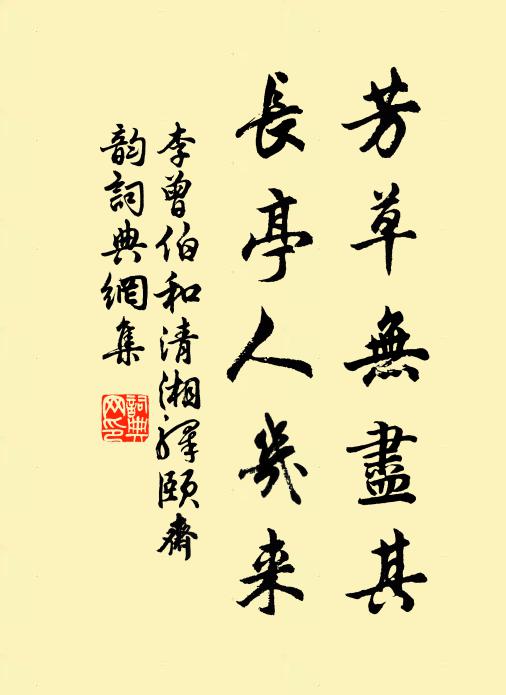 芳草無盡其
長亭人幾来
李曾伯和清湘驛頤齋
韵詞典網集
詞典网印